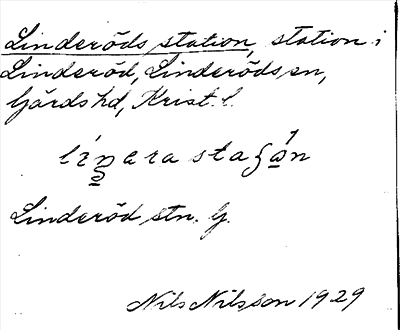 Linderöds station, station i
Linderöd, Linderöds sn,
Gärds hd, Krist. l.
Linderöd stn. G.
Nils Nilsson 1929